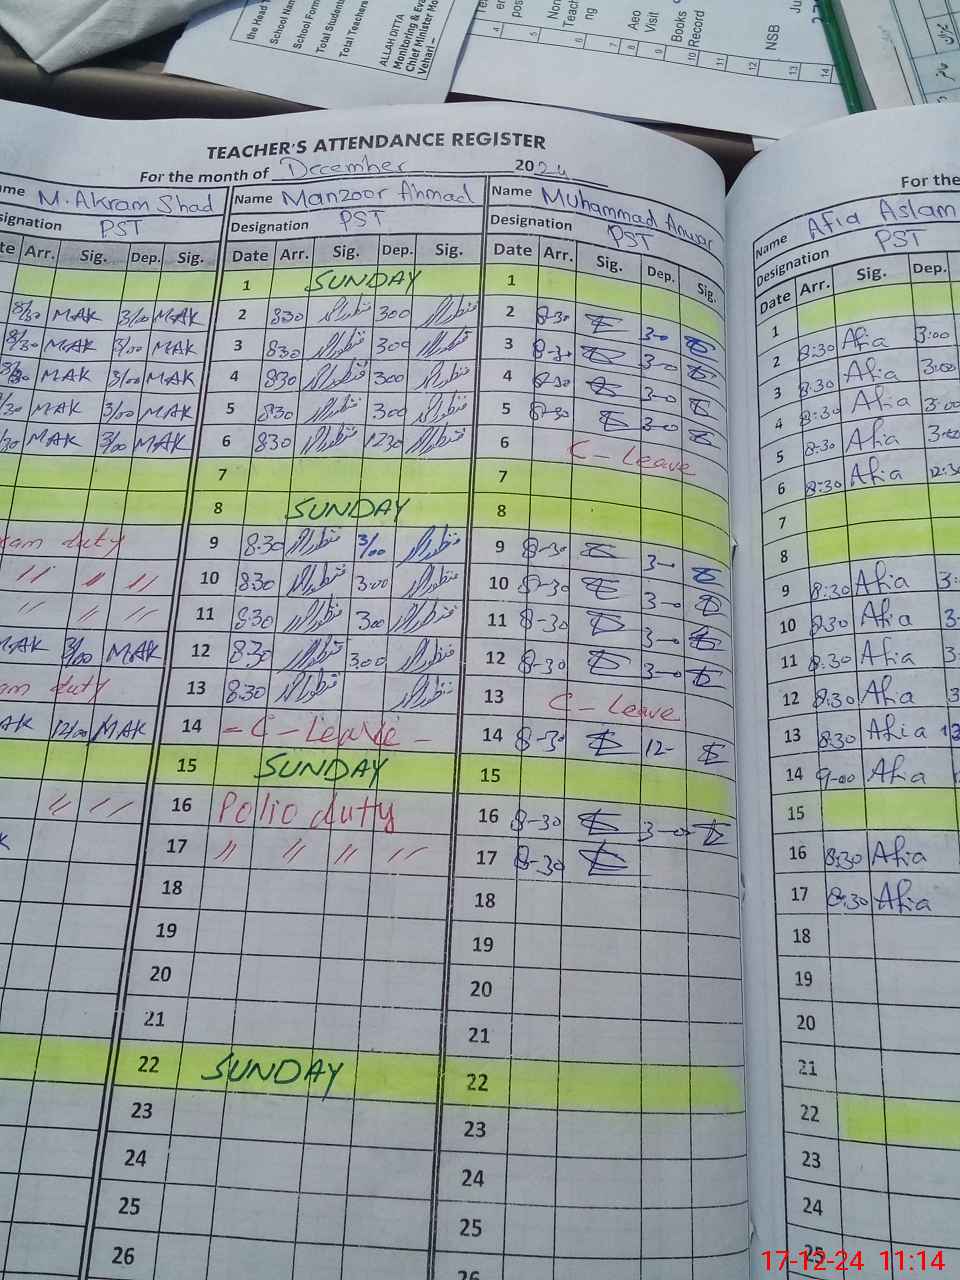 the Head
School Nam
School Form
Total Student
Total Teachers
ALLAH DITTA
Monitoring & Eva
Chief Minister Mo
Vehari –
4
5 Non
Teach
6 ng
7
8 Aeo
Visit
9
10 Books
Record
11
12 NSB
13
14
TEACHER'S ATTENDANCE REGISTER
For the month of December 2024
For the
ame M. Akram Shad
esignation PST
ate Arr. Sig. Dep. Sig.
8/30 MAK 3/00 MAK
8/30 MAK 3/00 MAK
8/30 MAK 3/00 MAK
/30 MAK 3/00 MAK
/30 MAK 3/00 MAK
am duty
〃 〃 〃
〃 〃 〃
MAK 3/00 MAK
am duty
AK 12/00 MAK
〃 〃 〃
K
Name Manzoor Ahmad
Designation PST
Date Arr. Sig. Dep. Sig.
1 SUNDAY
2 830 300
3 830 300
4 830 300
5 830 300
6 830 1230
7
8 SUNDAY
9 8:30 3/00
10 830 300
11 8:30 300
12 8:30 300
13 8:30
14 - C - Leave -
15 SUNDAY
16 Polio duty
17 〃 〃 〃 〃
18
19
20
21
22 SUNDAY
23
24
25
26
Name Muhammad Anwar
Designation PST
Date Arr. Sig. Dep. Sig.
1
2 8-30 3-0
3 8-30 3-0
4 8-30 3-0
5 8-30 3-0
6 C - Leave
7
8
9 8-30 3-0
10 8-30 3-0
11 8-30 3-0
12 8-30 3-0
13 C - Leave
14 8-30 12-
15
16 8-30 3-0
17 8-30
18
19
20
21
22
23
24
25
26
Name Afia Aslam
Designation PST
Date Arr. Sig. Dep.
1
2 8:30 Afia 3:00
3 8:30 Afia 3:00
4 8:30 Afia 3:00
5 8:30 Afia 3:00
6 8:30 Afia 12:30
7
8
9 8:30 Afia 3:
10 8:30 Afia 3-
11 8:30 Afia 3
12 8:30 Afia 3
13 8:30 Afia 12
14 9-00 Afia
15
16 8:30 Afia
17 8:30 Afia
18
19
20
21
22
23
24
25
17-12-24 11:14